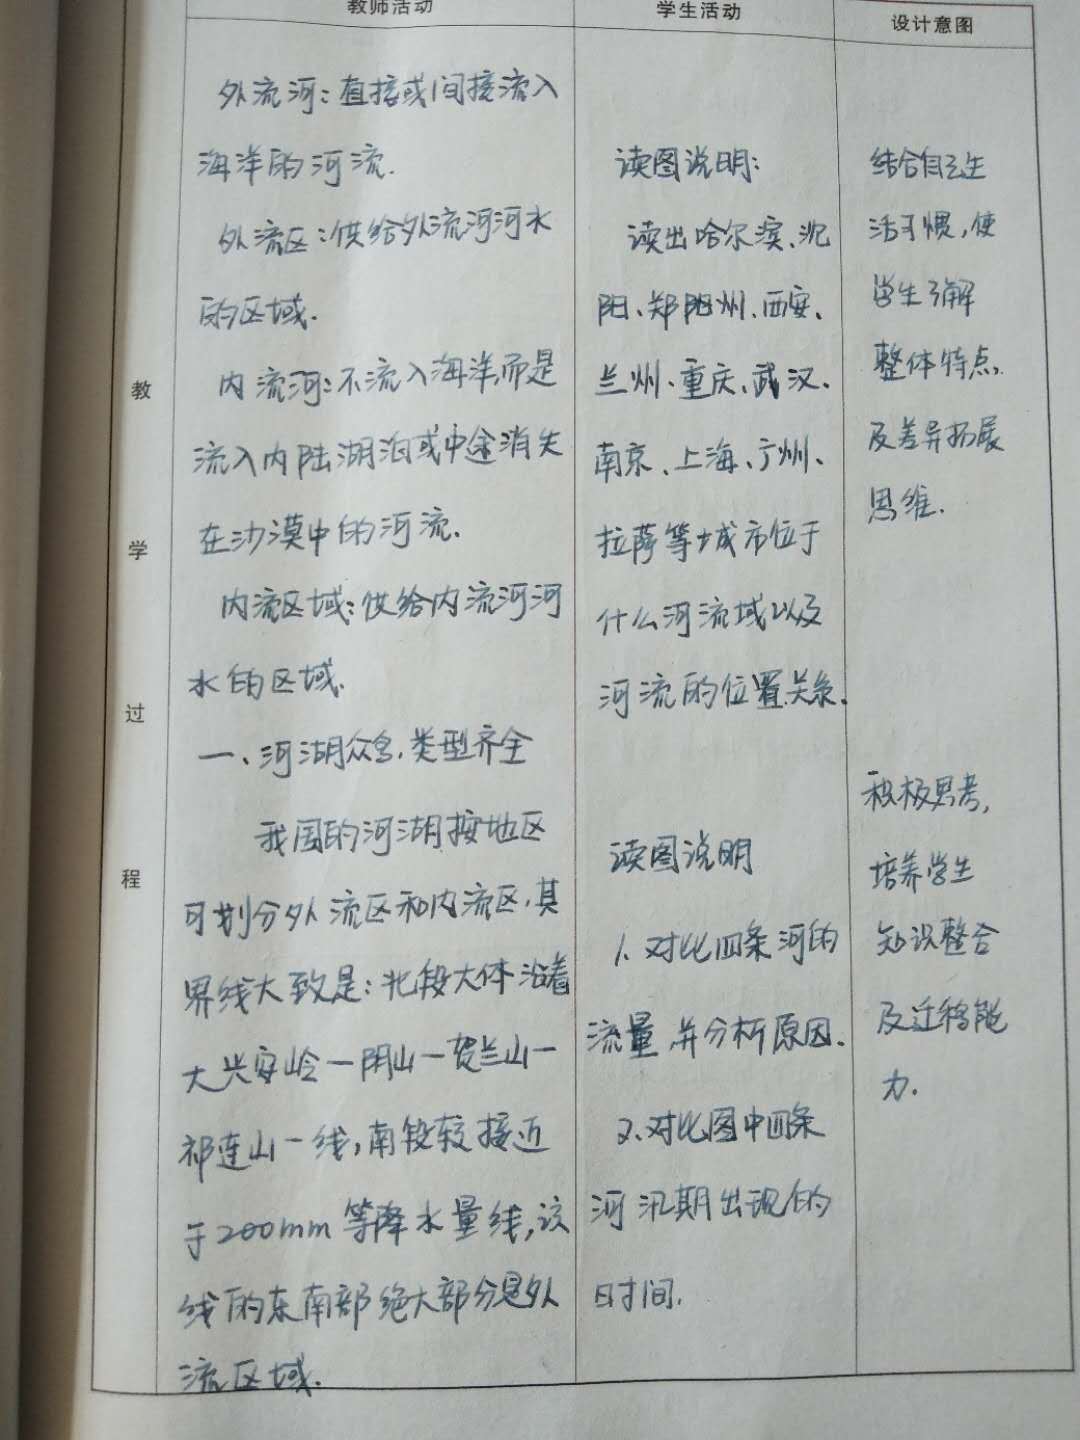 教师活动
学生活动
设计意图
教
学
过
程
外流河：直接或间接流入
海洋的河流.
外流区：供给外流河河水
的区域.
内流河：不流入海洋,而是
流入内陆湖泊或中途消失
在沙漠中的河流.
内流区域：供给内流河河
水的区域.
一、河湖众多,类型齐全
我国的河湖按地区
可划分外流区和内流区,其
界线大致是：北段大体沿着
大兴安岭—阴山—贺兰山—
祁连山一线,南段较接近
于200mm等降水量线,该
线的东南部绝大部分是外
流区域.
读图说明：
读出哈尔滨、沈
阳、郑州、西安、
兰州、重庆、武汉、
南京、上海、广州、
拉萨等城市位于
什么河流域以及
河流的位置关系.
读图说明
1.对比四条河的
流量,并分析原因.
2.对比图中四条
河汛期出现的
时间.
结合自己生
活习惯,使
学生了解
整体特点,
及差异拓展
思维.
积极思考,
培养学生
知识整合
及迁移能
力.